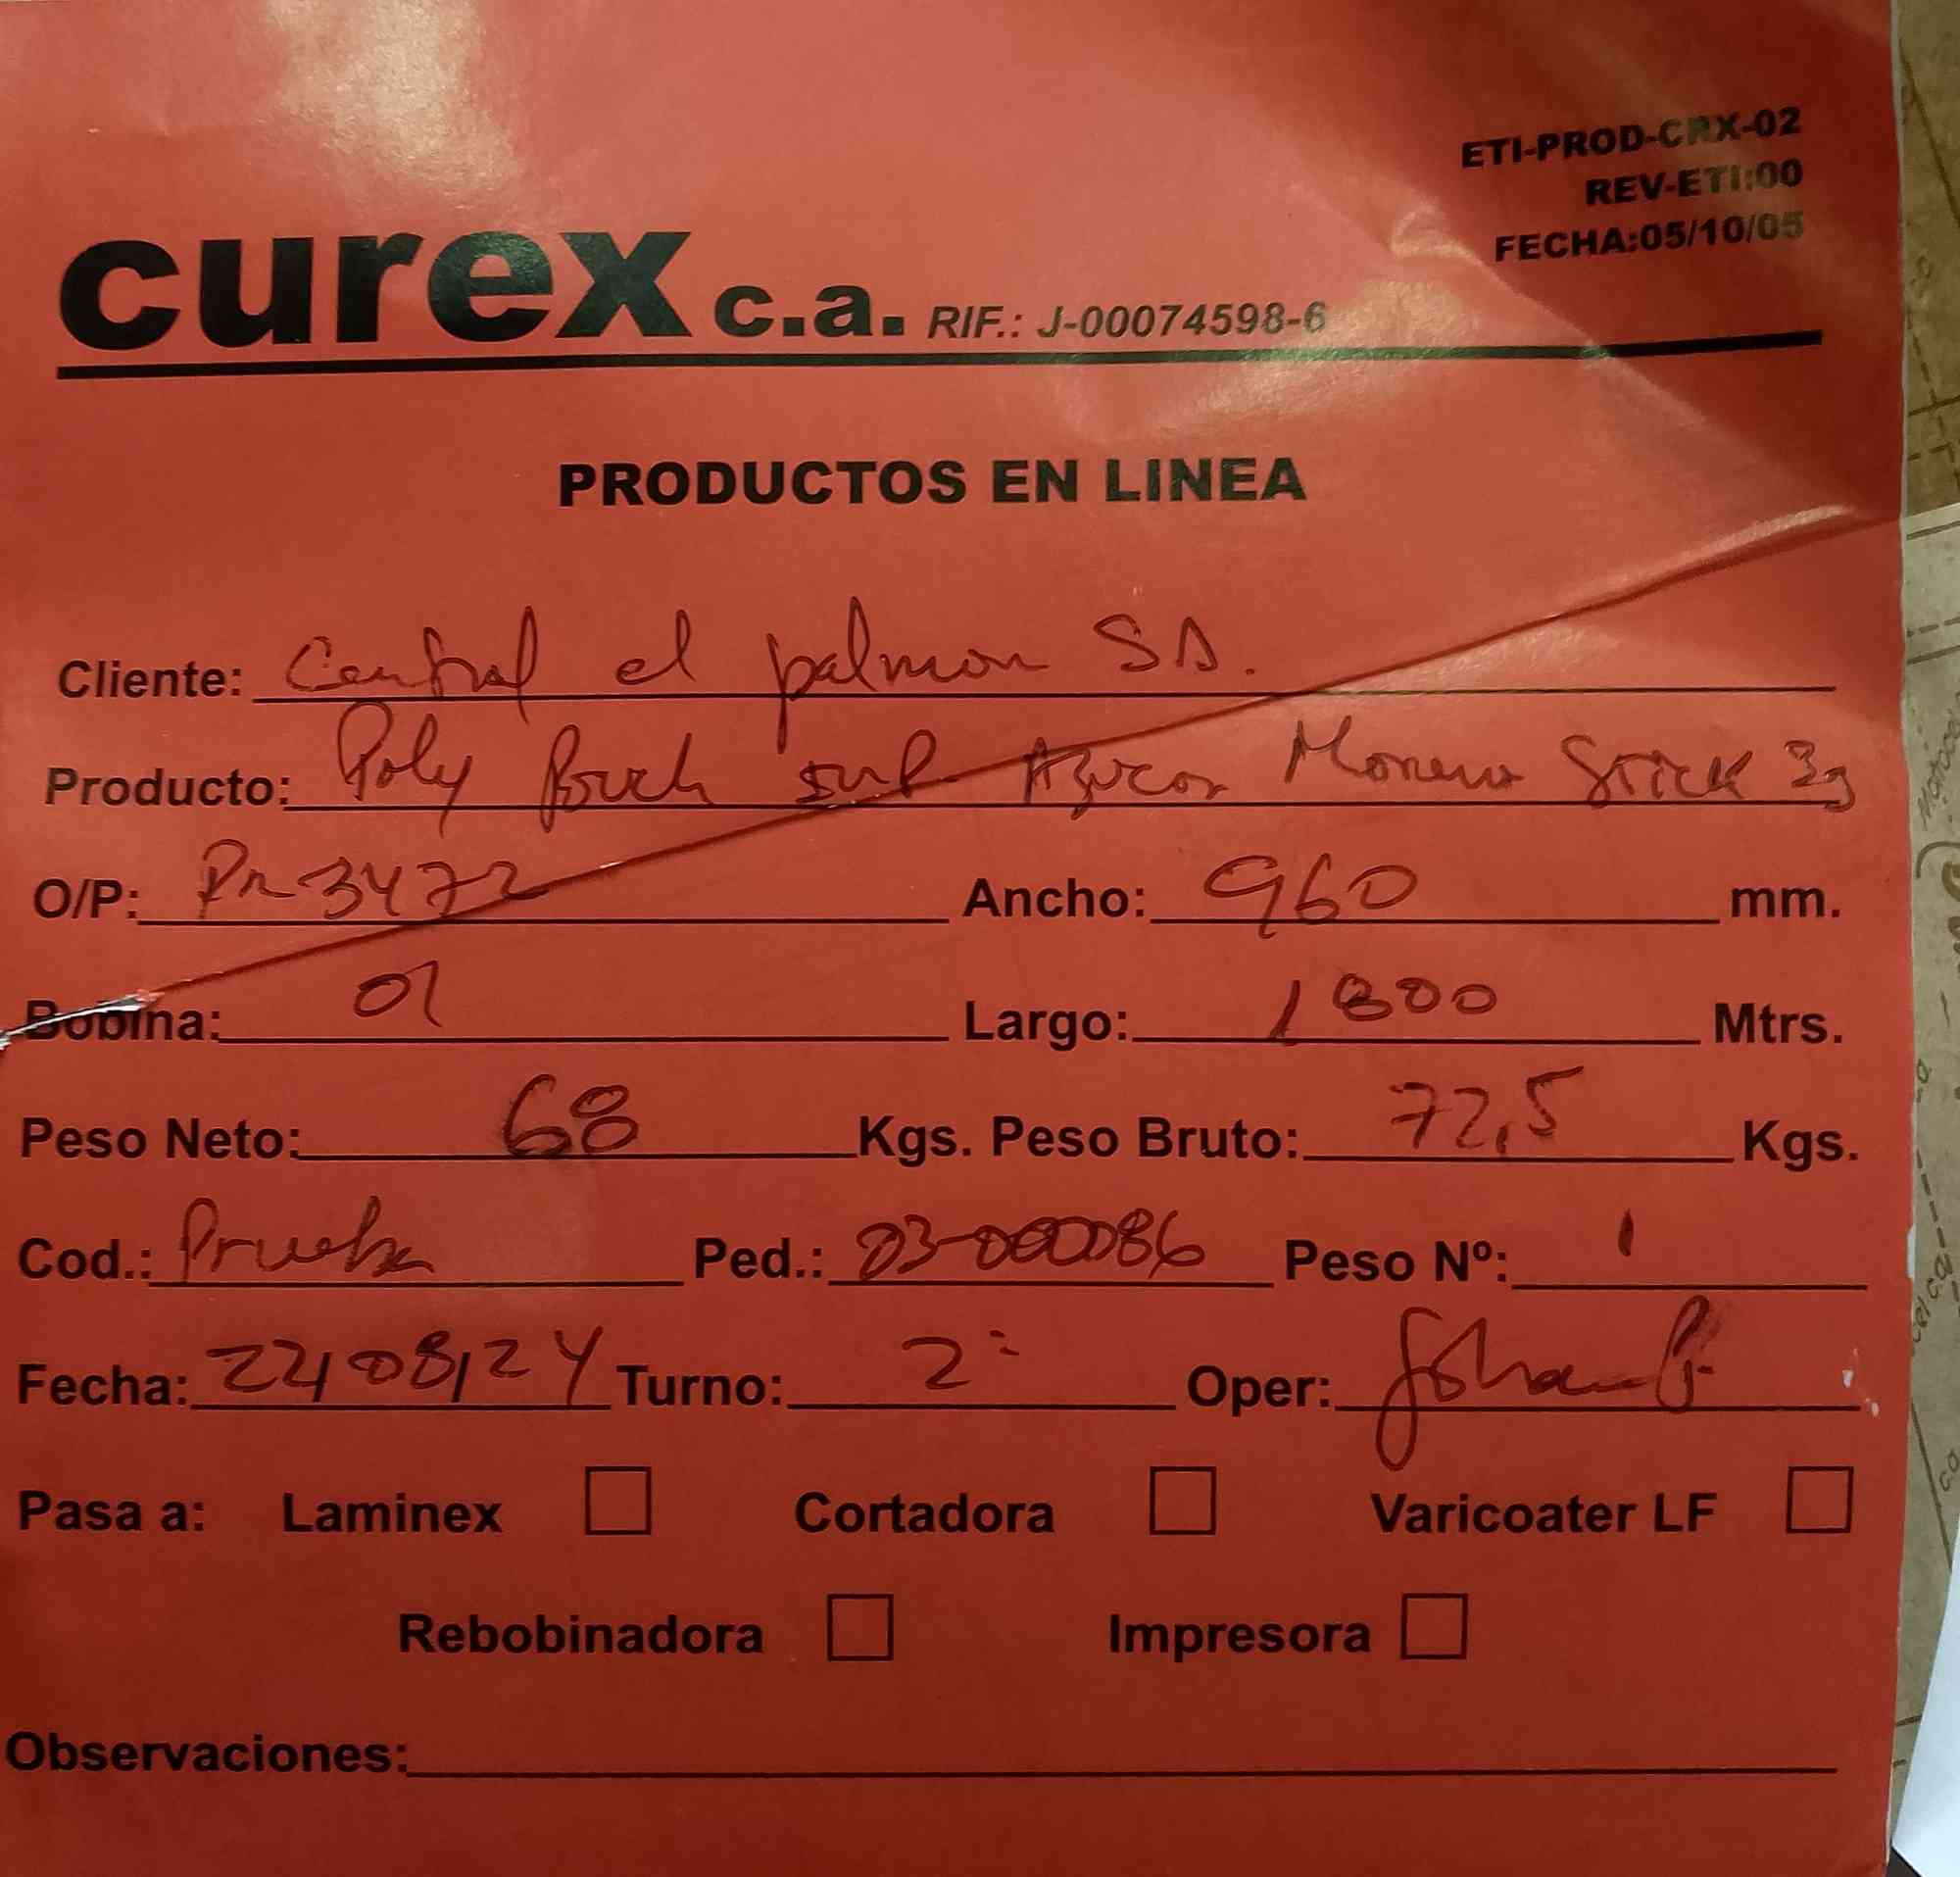 ETI-PROD-CRX-02
REV-ETI:00
FECHA:05/10/05
curex c.a. RIF.: J-00074598-6
PRODUCTOS EN LINEA
Cliente: Central el palmar SA.
Producto: Poly Pouch sup Azucar Morena Stick 3g
O/P: Pr-3472 Ancho: 960 mm.
Bobina: 01 Largo: 1800 Mtrs.
Peso Neto: 68 Kgs. Peso Bruto: 72,5 Kgs.
Cod.: Prueba Ped.: 03-000086 Peso Nº: 1
Fecha: 22/08/24 Turno: 2 Oper: Johan P.
Pasa a: Laminex Cortadora Varicoater LF
Rebobinadora Impresora
Observaciones: